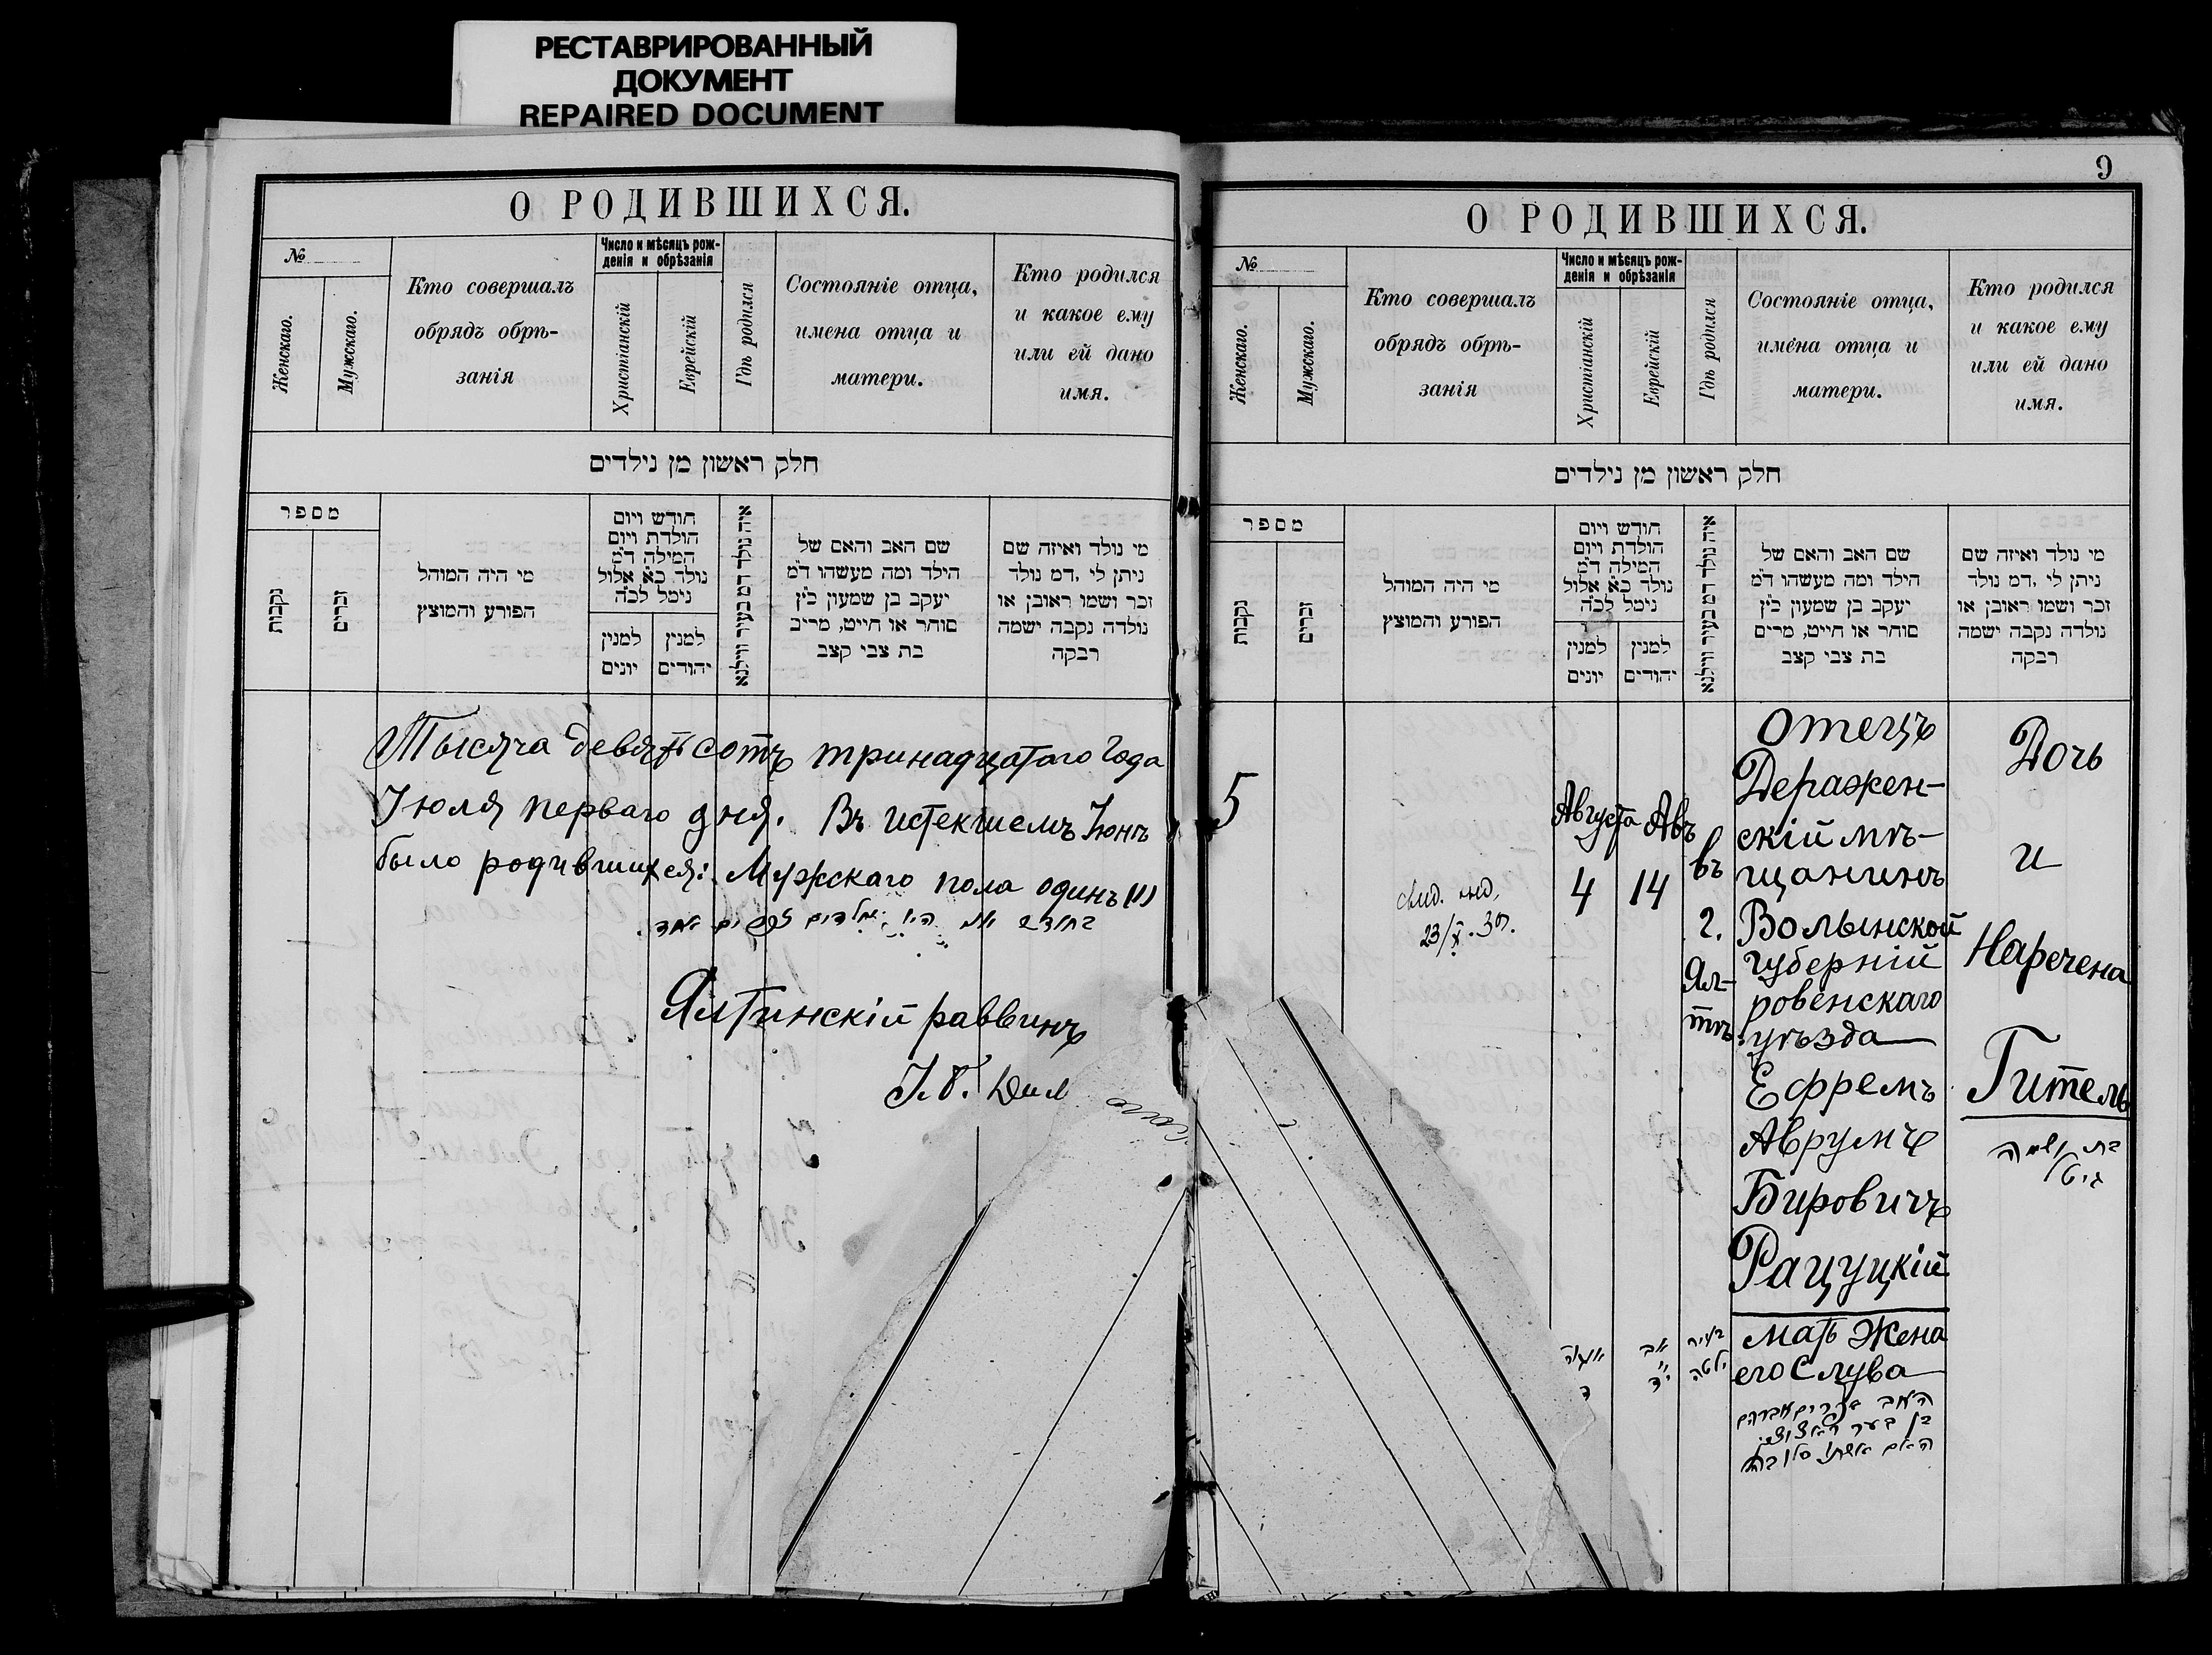 РЕСТАВРИРОВАННЫЙ
ДОКУМЕНТ
REPAIRED DOCUMENT
О РОДИВШИХСЯ.
№
Женскаго.
Мужскаго.
Кто совершалъ
обрядъ обрѣ-
занія
Число и мѣсяцъ рож-
денія и обрѣзанія
Христіанскій
Еврейскій
Гдѣ родился
Состояніе отца,
имена отца и
матери.
Кто родился
и какое ему
или ей дано
имя.
חלק ראשון מן נילדים
מספר
נקבות
זכרים
מי היה המוהל
הפורע והמוצץ
חודש ויום
הולדת ויום
המילה ד״מ
נולד כ״א אלול
נימל לכ״ה
למנין
יונים
למנין
יהודים
איה נולד דמ בעיר ווילנא
שם האב והאם של
הילד ומה מעשהו ד״מ
יעקב בן שמעון כ״ץ
סוחר או חייט, מרים
בת צבי קצב
מי נולד ואיזה שם
ניתן לי, דמ נולד
זכר ושמו ראובן או
נולדה נקבה ישמה
רבקה
Тысяча девятьсотъ тринадцатаго года
Іюля перваго дня. Въ истекшемъ Іюнѣ
было родившихся: Мужскаго пола одинъ (1)
Ялтинскій раввинъ
9
О РОДИВШИХСЯ.
№
Женскаго.
Мужскаго.
Кто совершалъ
обрядъ обрѣ-
занія
Число и мѣсяцъ рож-
денія и обрѣзанія
Христіанскій
Еврейскій
Гдѣ родился
Состояніе отца,
имена отца и
матери.
Кто родился
и какое ему
или ей дано
имя.
חלק ראשון מן נילדים
מספר
נקבות
זכרים
מי היה המוהל
הפורע והמוצץ
חודש ויום
הולדת ויום
המילה ד״מ
נולד כ״א אלול
נימל לכ״ה
למנין
יונים
למנין
יהודים
איה נולד דמ בעיר ווילנא
שם האב והאם של
הילד ומה מעשהו ד״מ
יעקב בן שמעון כ״ץ
סוחר או חייט, מרים
בת צבי קצב
מי נולד ואיזה שם
ניתן לי, דמ נולד
זכר ושמו ראובן או
נולדה נקבה ישמה
רבקה
5
23/X.39.
Августа
4
Авъ
14
въ
г.
Ял-
тѣ
отецъ
Деражен-
скій мѣ-
щанинъ
Волынской
губерній
ровенскаго
уѣзда
Ефремъ
Аврумъ
Бировичъ
Рацуцкій
мать Жена
его Слува
Дочь
и
Наречена
Гитель
בת ושמה
גיטל
אב
י״ד
בעיר
ילטה
האב אפרים אברהם
האם אשתו סלובה